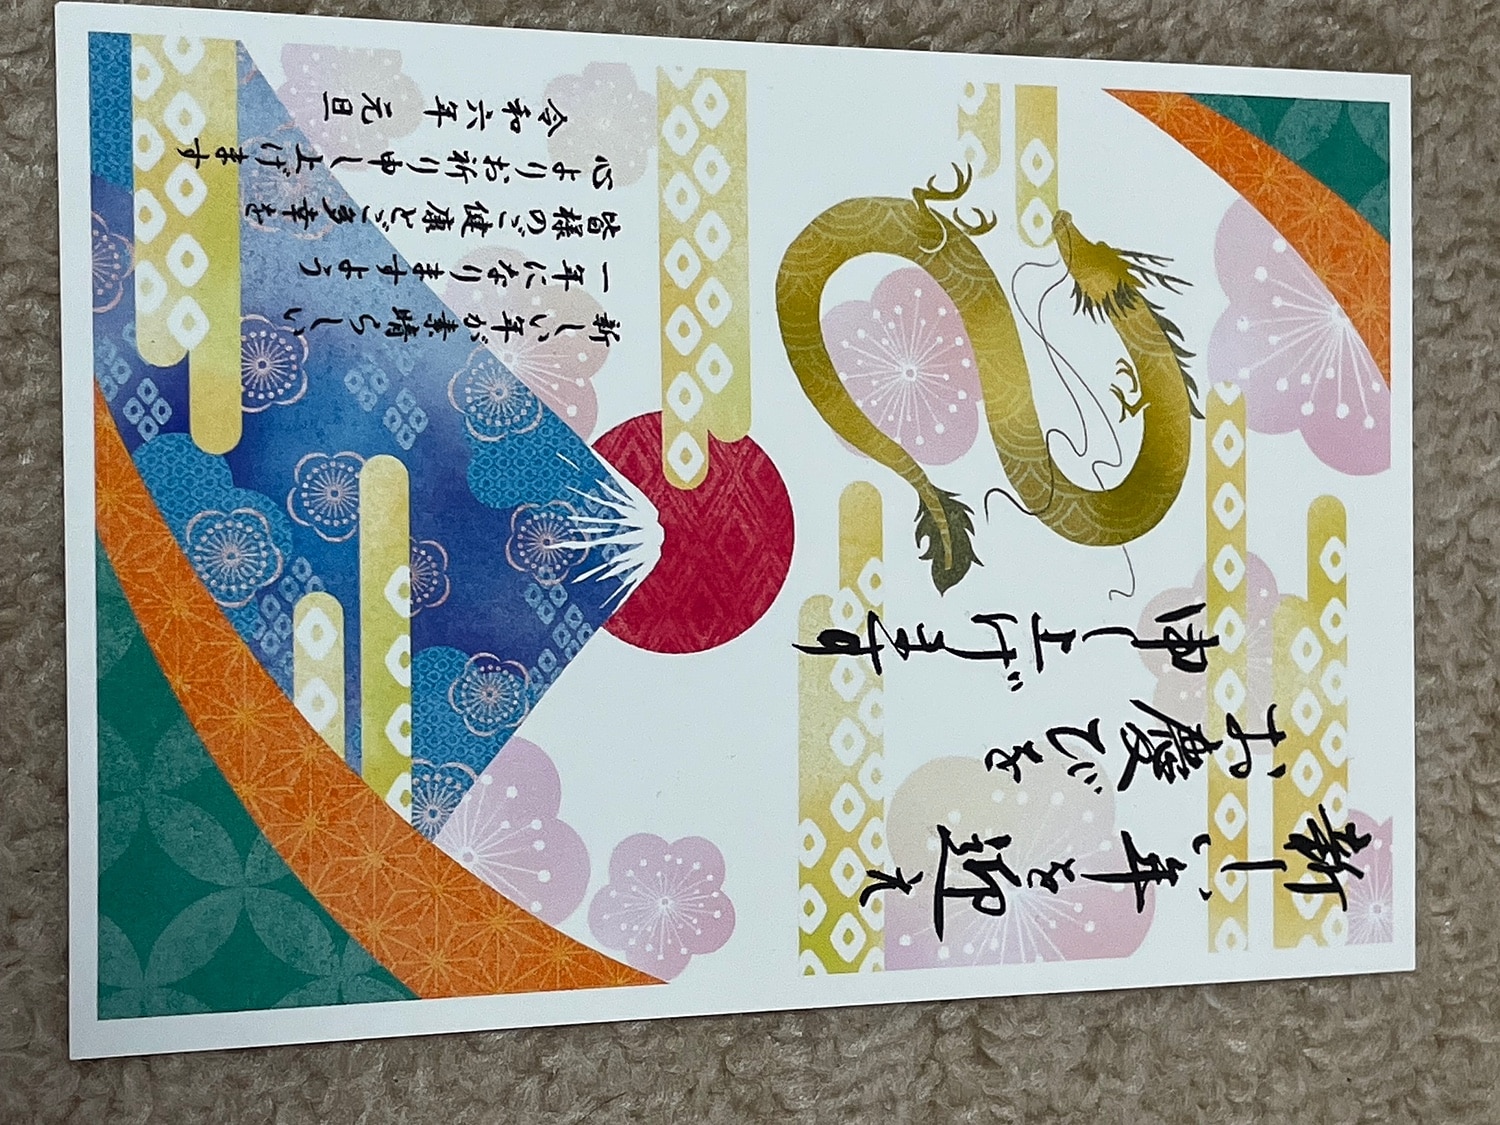 新しい年を迎え
お慶びを
申し上げます
新しい年が素晴らしい
一年になりますよう
皆様のご健康とご多幸を
心よりお祈り申し上げます
令和六年 元旦